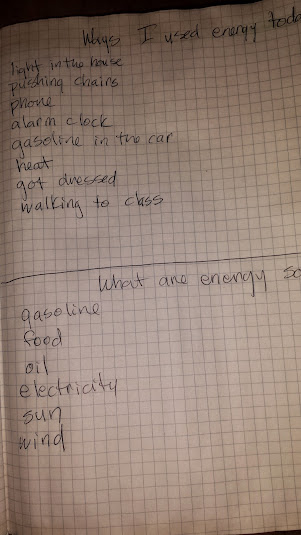 Ways I used energy toda
light in the house
pushing chairs
phone
alarm clock
gasoline in the car
heat
got dressed
walking to class
What are energy so
gasoline
food
oil
electricity
sun
wind